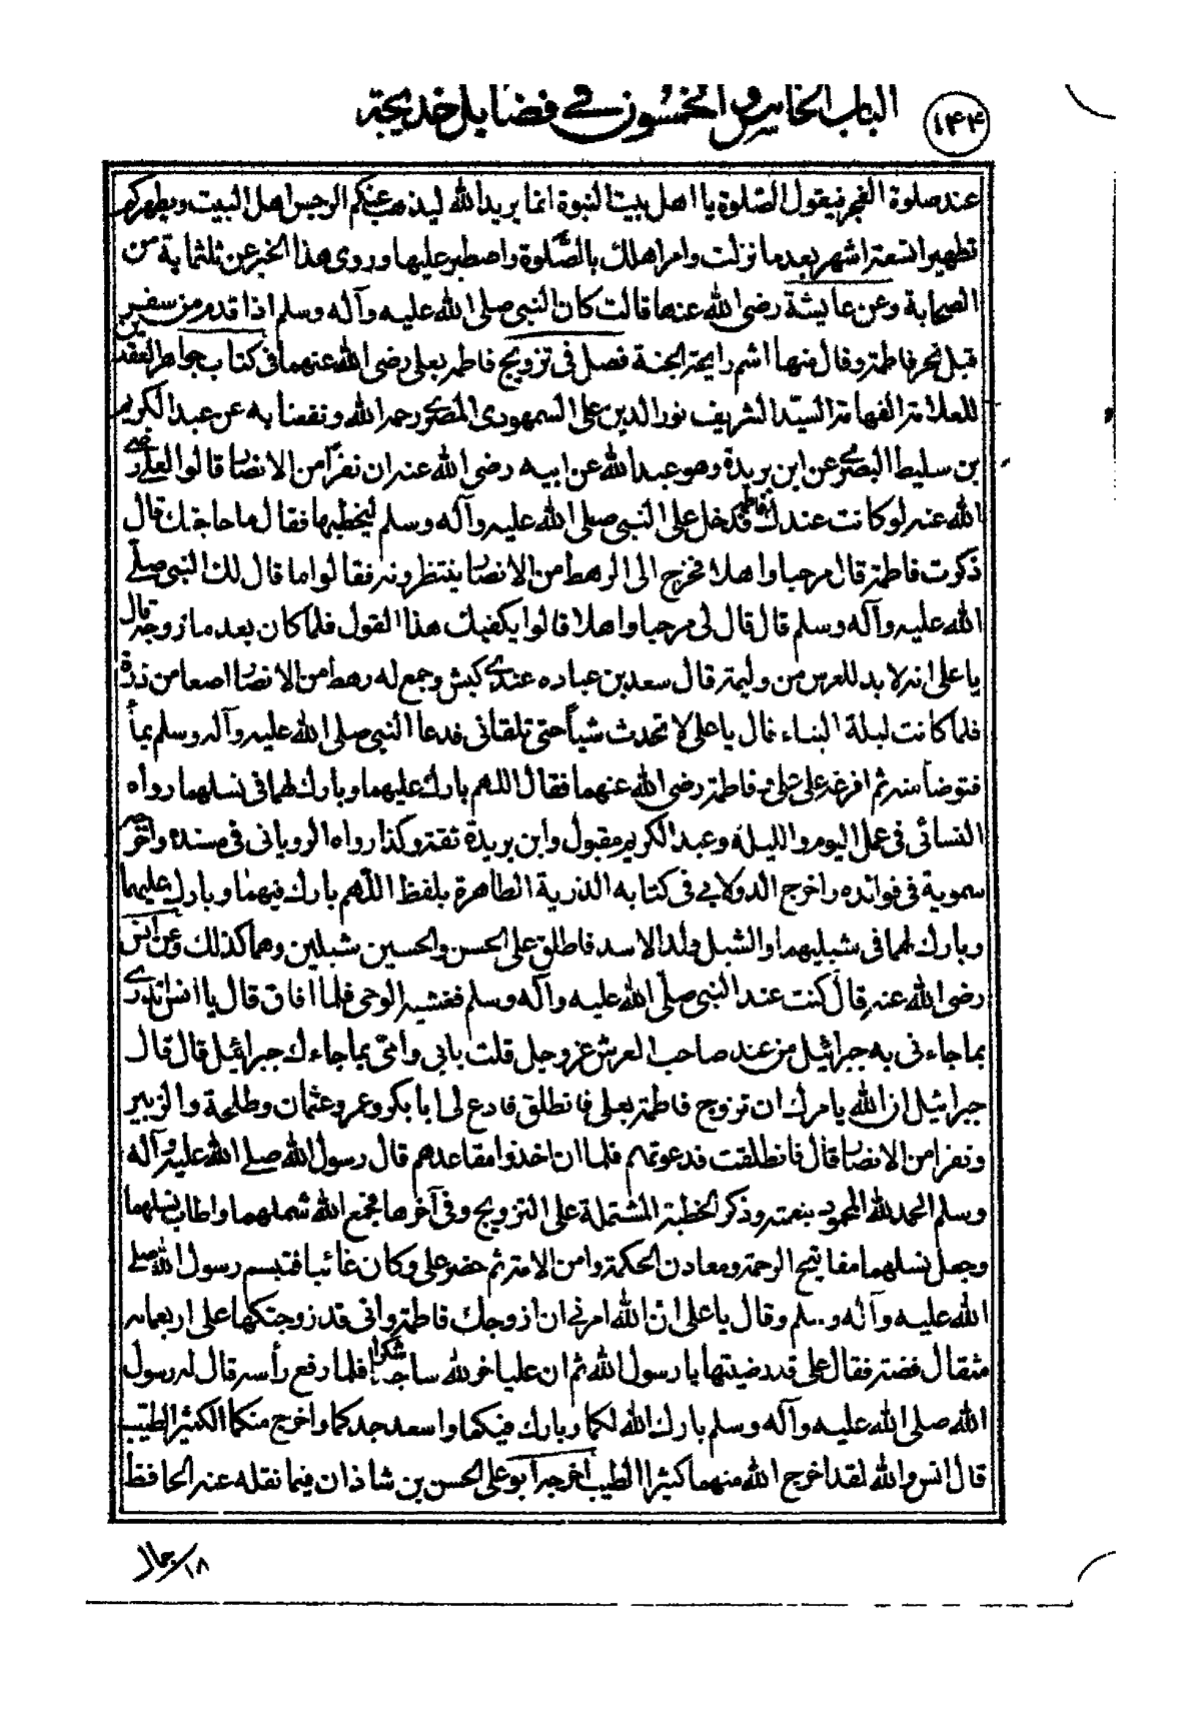 الباب الخامس و الخمسون في فضايل خديجة
١٤٤
عند صلوة الفجر فيقول الصلوة يا اهل بيت النبوة انما يريد الله ليذهب عنكم الرجس اهل البيت ويطهركم
تطهيرا تسعة اشهر بعد ما نزلت وامر اهلك بالصّلوة واصطبر عليها وروى هذا الخبر عن ثلثماية من
الصحابة وعن عايشة رضى الله عنها قالت كان النبى صلى الله عليه وآله وسلم اذا قدم من سفر
قبل نحر فاطمة وقال منها اشم رايحة الجنة فصل فى تزويج فاطمة بعلى رضى الله عنهما فى كتاب جواهر العقدين
للعلامة الفهامة السيّد الشريف نور الدين على السمهودى المصرى رحمه الله ونفعنا به عن عبد الكريم
بن سليط البصرى عن ابن بريدة وهو عبد الله عن ابيه رضى الله عنه ان نفرا من الانصار قالوا لعلى رضى
الله عنه لو كانت عندك فاطمة فدخل على النبى صلى الله عليه وآله وسلم ليخطبها فقال ما حاجتك قال
ذكرت فاطمة قال مرحبا واهلا فخرج الى الرهط من الانصار ينتظرونه فقالوا ما قال لك النبى صلى
الله عليه وآله وسلم قال قال لى مرحبا واهلا قالوا يكفيك هذا القول فلما كان بعد ما زوجه قال
يا على انه لا بد للعرس من وليمة قال سعد بن عباده عندى كبش وجمع له رهط من الانصار اصعا من ذرة
فلما كانت ليلة البناء قال يا على لا تحدث شيأ حتى تلقانى فدعا النبى صلى الله عليه وآله وسلم بمأ
فتوضأ منه ثم افرغه على على وفاطمة رضى الله عنهما فقال اللهم بارك عليهما وبارك لهما فى نسلهما رواه
النسائى فى عمل اليوم والليلة وعبد الكريم مقبول وابن بريدة ثقة وكذا رواه الرويانى فى مسنده واخرجه
سموية فى فوائده واخرج الدولابى فى كتابه الذرية الطاهرة بلفظ اللّهم بارك فيهما وبارك عليهما
وبارك لهما فى شبليهما والشبل ولد الاسد فاطلق على الحسن والحسين شبلين وهما كذلك وعن انس
رضى الله عنه قال كنت عند النبى صلّى الله عليه وآله وسلم فغشيه الوحى فلما افاق قال يا انس تدرى
بما جاءنى به جبرائيل من عند صاحب العرش عز وجل قلت بابى وامى بما جاءك جبرائيل قال قال
جبرائيل ان الله يامرك ان تزوج فاطمة بعلى فانطلق فادع لى ابا بكر وعمر وعثمان وطلحة والزبير
ونفرا من الانصار قال فانطلقت فدعوتهم فلما ان اخذوا مقاعدهم قال رسول الله صلى الله عليه وآله
وسلم الحمد لله المحمود بنعمته وذكر الخطبة المشتملة على التزويج وفى آخرها فجمع الله شملهما واطاب نسلهما
وجعل نسلهما مفاتيح الرحمة ومعادن الحكمة وامن الامة ثم حضر على وكان غائبا فتبسم رسول الله صلى
الله عليه وآله وسلم وقال يا على ان الله امرنى ان ازوجك فاطمة وانى قد زوجتكها على اربعمايه
مثقال فضة فقال على قد رضيتها يا رسول الله ثم ان عليا خر لله ساجدا شكرا فلما رفع رأسه قال له رسول
الله صلى الله عليه وآله وسلم بارك الله لكما وبارك فيكما واسعد جدكما واخرج منكما الكثير الطيّب
قال انس والله لقد اخرج الله منهما كثيرا الطيب اخرجه ابو على الحسن بن شاذان فيما نقله عنه الحافظ
جمال/١٨